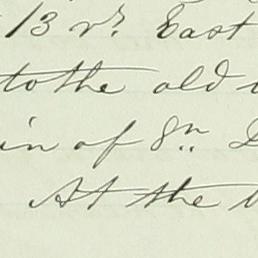 13 rs. East
to the old
in of 8n.
At the